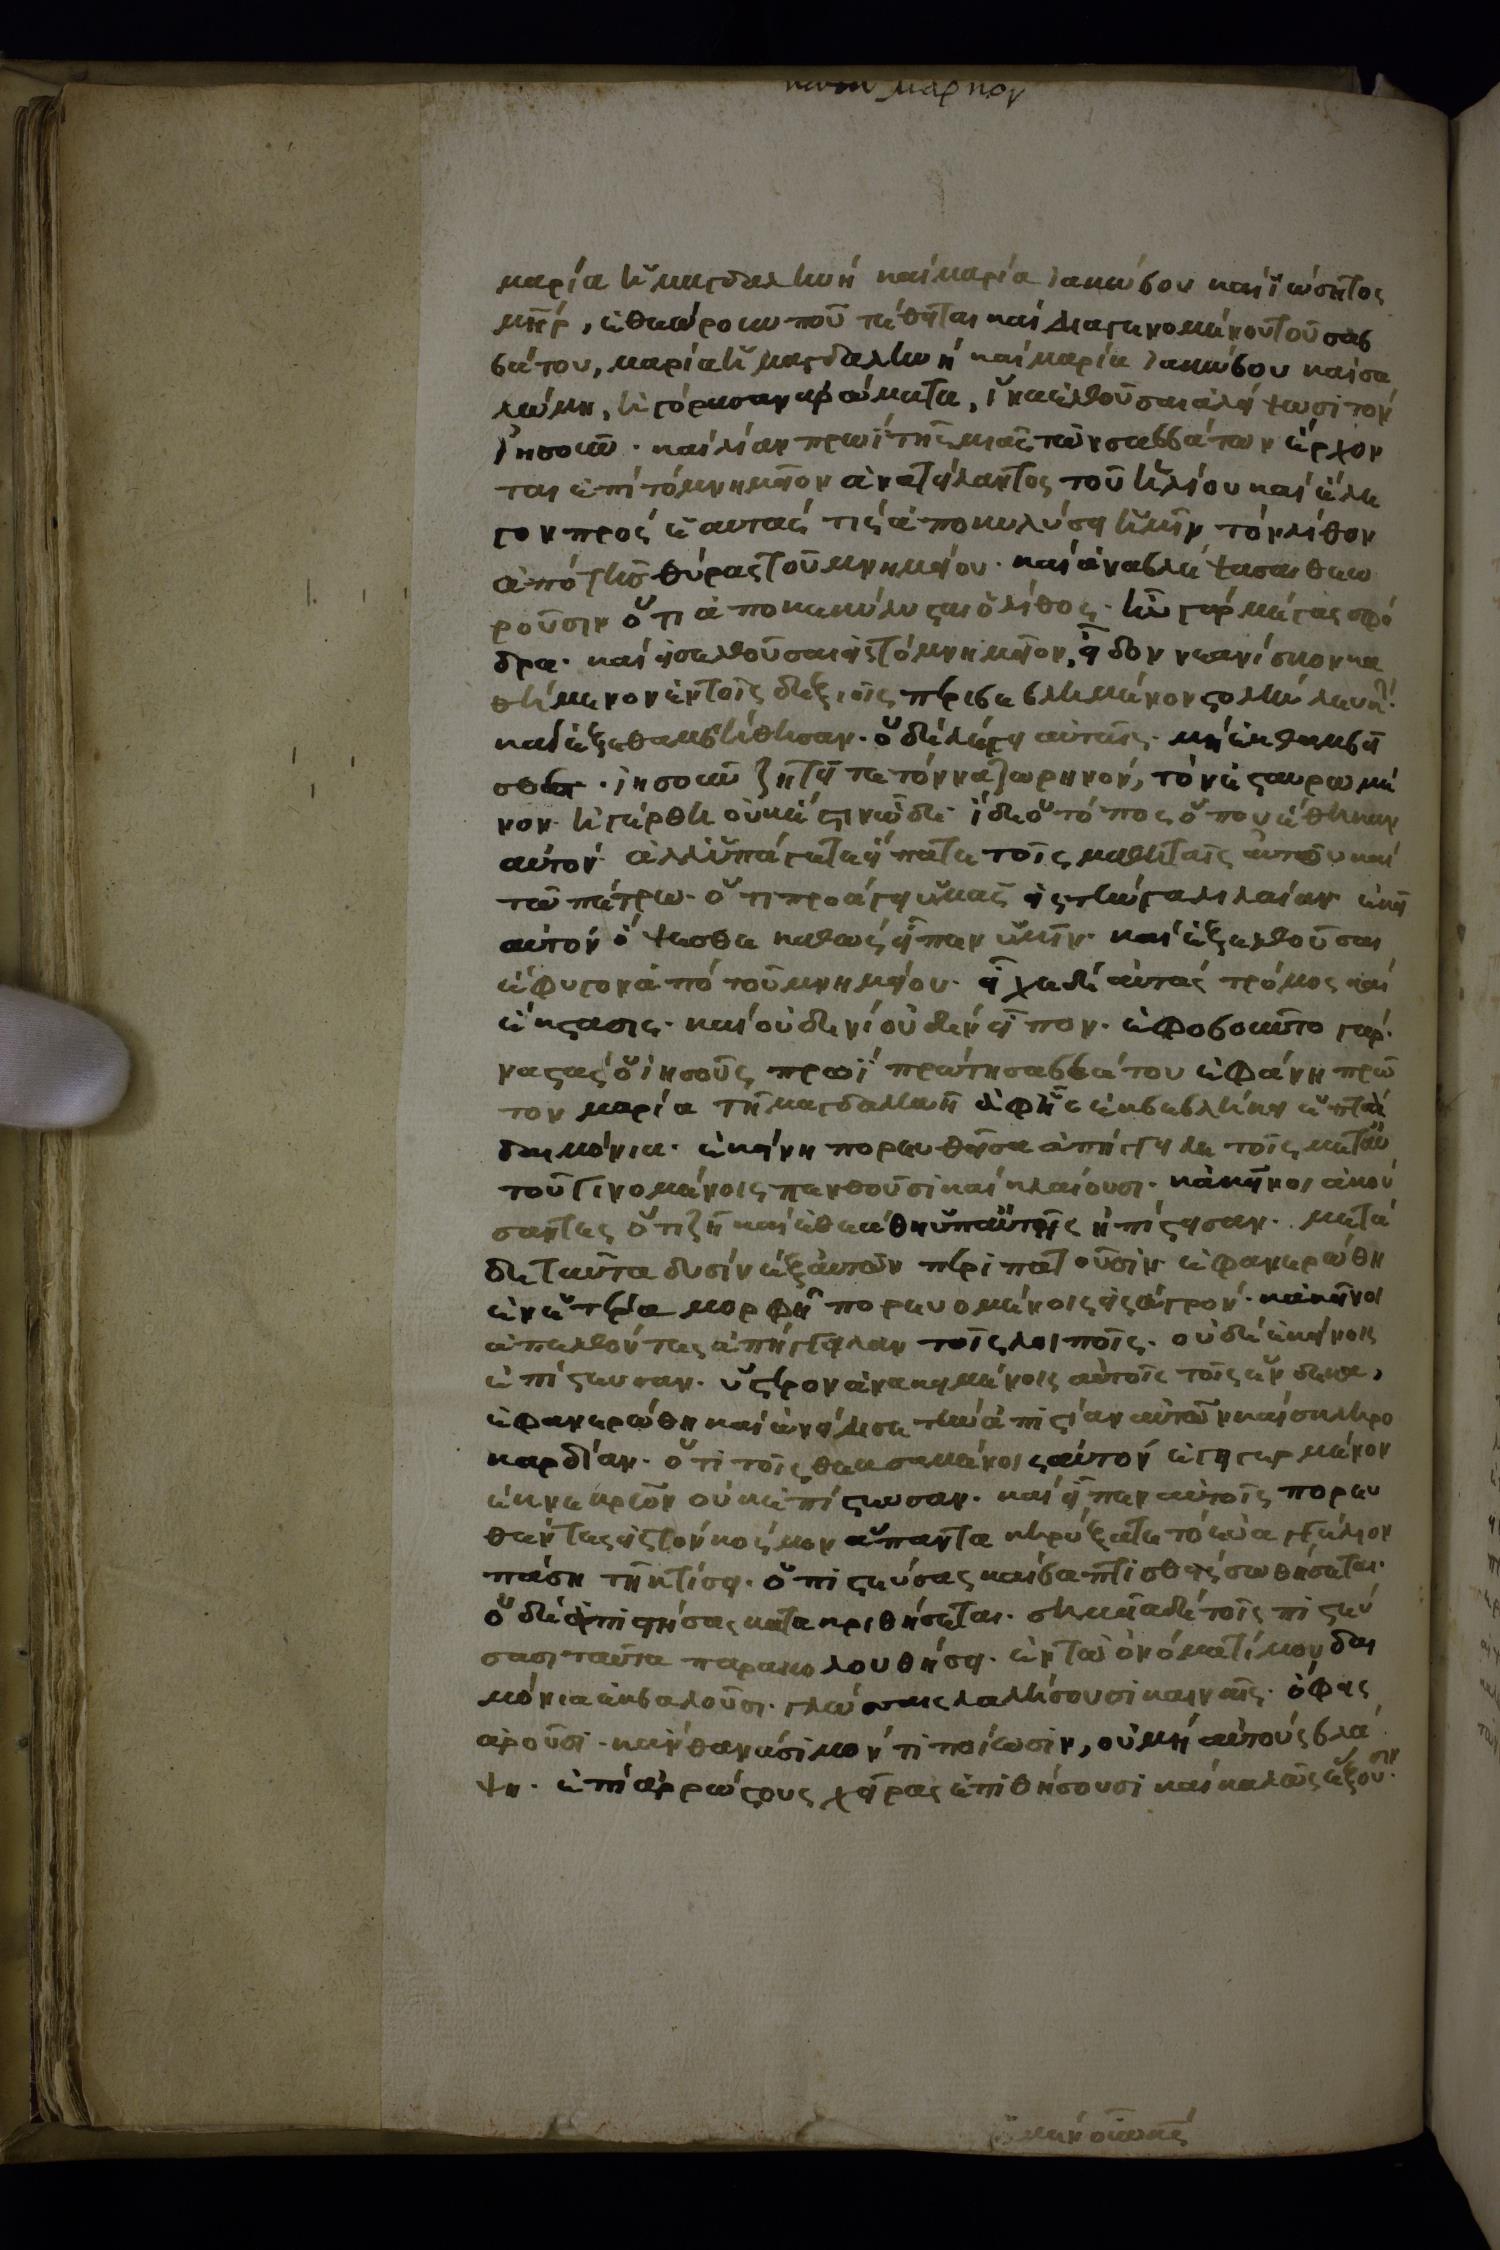 κατὰ μάρκον
μαρία ἡ μαγδαληνὴ καὶ μαρία ἰακώβου καὶ ἰώσητος
μηρ, ἐθεώρουν ποῦ τέθηται καὶ διαγενομένου τοῦ σαβ
βάτου, μαρία ἡ μαγδαληνὴ καὶ μαρία ἰακώβου καὶ σα
λώμη, ἠγόρασαν ἀρώματα, ἵνα ἐλθοῦσαι ἀλείψωσι τὸν
ἰησοῦν. καὶ λίαν πρωῒ τῆς μιᾶς τῶν σαββάτων ἔρχον
ται ἐπὶ τὸ μνημεῖον ἀνατείλαντος τοῦ ἡλίου καὶ ἔλε
γον πρὸς ἑαυτάς τίς ἀποκυλύσει ἡμῖν τὸν λίθον
ἀπὸ τῆς θύρας τοῦ μνημείου. καὶ ἀναβλέψασαι θεω
ροῦσιν ὅτι ἀποκεκύλυσται ὁ λίθος. ἦν γὰρ μέγας σφό
δρα. καὶ εἰσελθοῦσαι εἰς τὸ μνημεῖον, εἶδον νεανίσκον κα
θήμενον ἐν τοῖς δεξιοῖς περιβεβλημένον στολὴν λευκήν.
καὶ ἐξεθαμβήθησαν. ὁ δὲ λέγει αὐταῖς. μὴ ἐκθαμβεῖ
σθε. ἰησοῦν ζητεῖτε τὸν ναζωρηνόν, τὸν ἐσταυρωμέ
νον. ἠγέρθη οὐκ ἔστιν ὧδε. ἴδε ὁ τόπος ὅπου ἔθηκαν
αὐτόν. ἀλλ' ὑπάγετε εἴπατε τοῖς μαθηταῖς αὐτοῦ καὶ
τῶ πέτρω. ὅτι προάγει ὑμᾶς εἰς τὴν γαλιλαίαν. ἐκεῖ
αὐτὸν ὄψεσθε καθὼς εἶπεν ὑμῖν. καὶ ἐξελθοῦσαι
ἔφυγον ἀπὸ τοῦ μνημείου. εἶχε δὲ αὐτὰς τρόμος καὶ
ἔκστασις. καὶ οὐδενὶ οὐδὲν εἶπον. ἐφοβοῦντο γάρ.
ναστὰς ὁ ἰησοῦς πρωῒ πρώτη σαββάτου ἐφάνη πρῶ
τον μαρία τῆ μαγδαληνῆ ἀφ' ἧς ἐκβεβλήκει ἑπτὰ
δαιμόνια. ἐκείνη πορευθεῖσα ἀπήγγειλε τοῖς μετ' αὐ
τοῦ γινομένοις πενθοῦσι καὶ κλαίουσι. κἀκεῖνοι ἀκού
σαντες ὅτι ζῆ καὶ ἐθεάθη ὑπ' αὐτῆς ἠπίστησαν. μετὰ
δὲ ταῦτα δυσὶν ἐξ αὐτῶν περιπατοῦσιν ἐφανερώθη
ἐν ἑτέρα μορφῆ πορευομένοις εἰς ἀγρόν. κἀκεῖνοι
ἀπελθόντες ἀπήγγειλαν τοῖς λοιποῖς. οὐδὲ ἐκείνοις
ἐπίστευσαν. ὕστερον ἀνακειμένοις αὐτοῖς τοῖς ἕνδεκα,
ἐφανερώθη καὶ ὠνείδισε τὴν ἀπιστίαν αὐτῶν καὶ σκληρο
καρδίαν. ὅτι τοῖς θεασαμένοις αὐτὸν ἐγηγερμένον
ἐκ νεκρῶν οὐκ ἐπίστευσαν. καὶ εἶπεν αὐτοῖς πορευ
θέντες εἰς τὸν κόσμον ἅπαντα κηρύξατε τὸ εὐαγγέλιον
πάση τῆ κτίσει. ὁ πιστεύσας καὶ βαπτισθεὶς σωθήσεται.
ὁ δὲ ἀπιστήσας κατακριθήσεται. σημεῖα δὲ τοῖς πιστεύ
σασι ταῦτα παρακολουθήσει. ἐν τῶ ὀνόματί μου δαι
μόνια ἐκβαλοῦσι. γλώσσαις λαλήσουσι καιναῖς. ὄφεις
ἀροῦσι. κἂν θανάσιμόν τι πίωσιν, οὐ μὴ αὐτοὺς βλά
ψη. ἐπὶ ἀρρώστους χεῖρας ἐπιθήσουσι καὶ καλῶς ἕξουσιν.